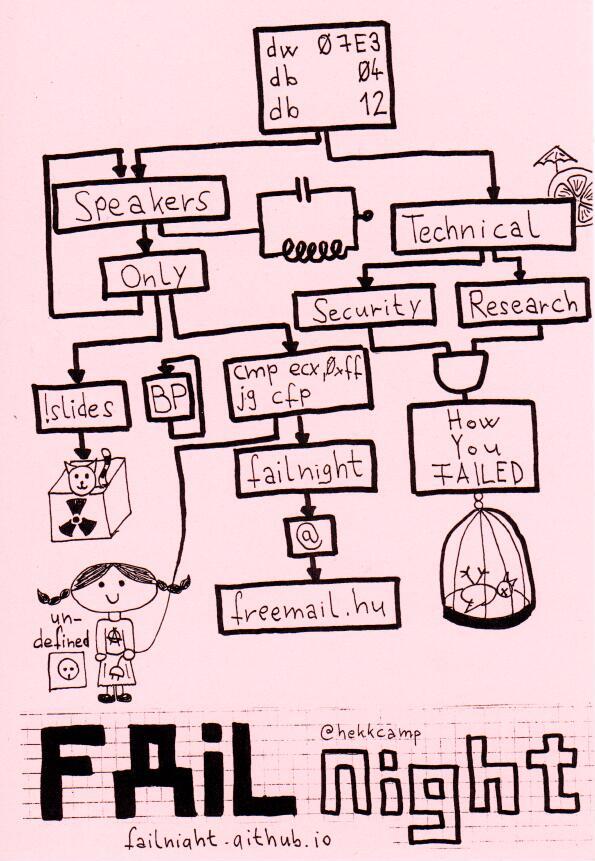 dw 07E3
db 04
db 12
Speakers
Technical
Only
Security
Research
!slides
BP
cmp ecx,0xff
jg cfp
How
You
FAILED
failnight
@
freemail.hu
un-
defined
A
FAiL
@hekkcamp
night
failnight.github.io